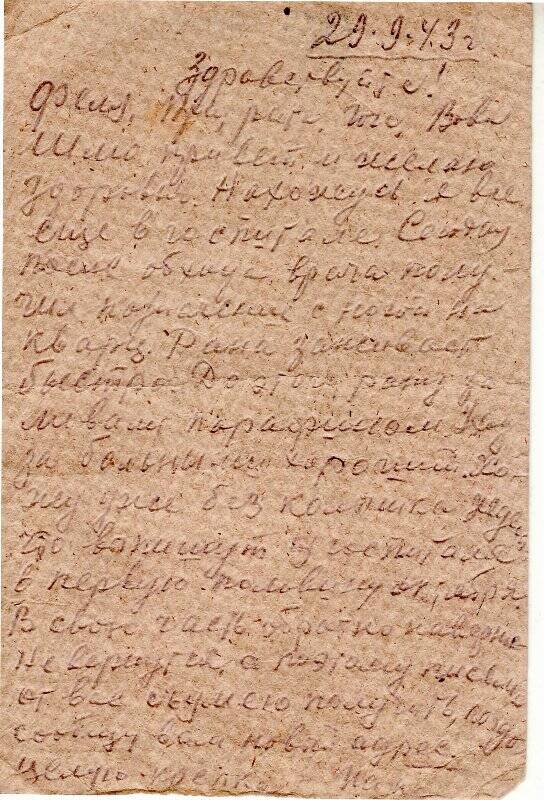 29.9.43г
Здравствуйте!
Вова
Шлю привет и желаю
здоровья. Нахожусь я все
еще в госпитале. Сегодня
после обхода врача полу-
чил назначение с ногой на
кварц. Рана заживает
быстро. До этого рану за-
ливали парафином.
за больными хороший. Хо-
жу уже без
что выпишут из госпиталя
в первую половину октября.
В свою часть обратно наверно
не вернутся, а поэтому письма
от вас сумею получить, когда
сообщу вам новый адрес. До
целую крепко